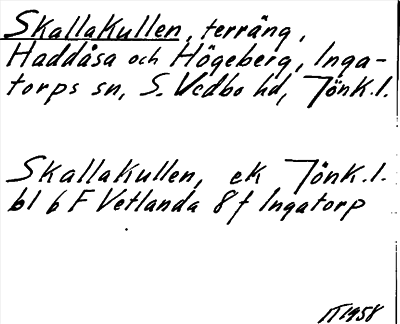 Skallakullen, terräng,
Haddåsa och Högeberg, Inga-
torps sn, S. Vedbo hd, Jönk.l.
Skallakullen, ek Jönk.l.
bl 6 F Vetlanda 8f Ingatorp
1958